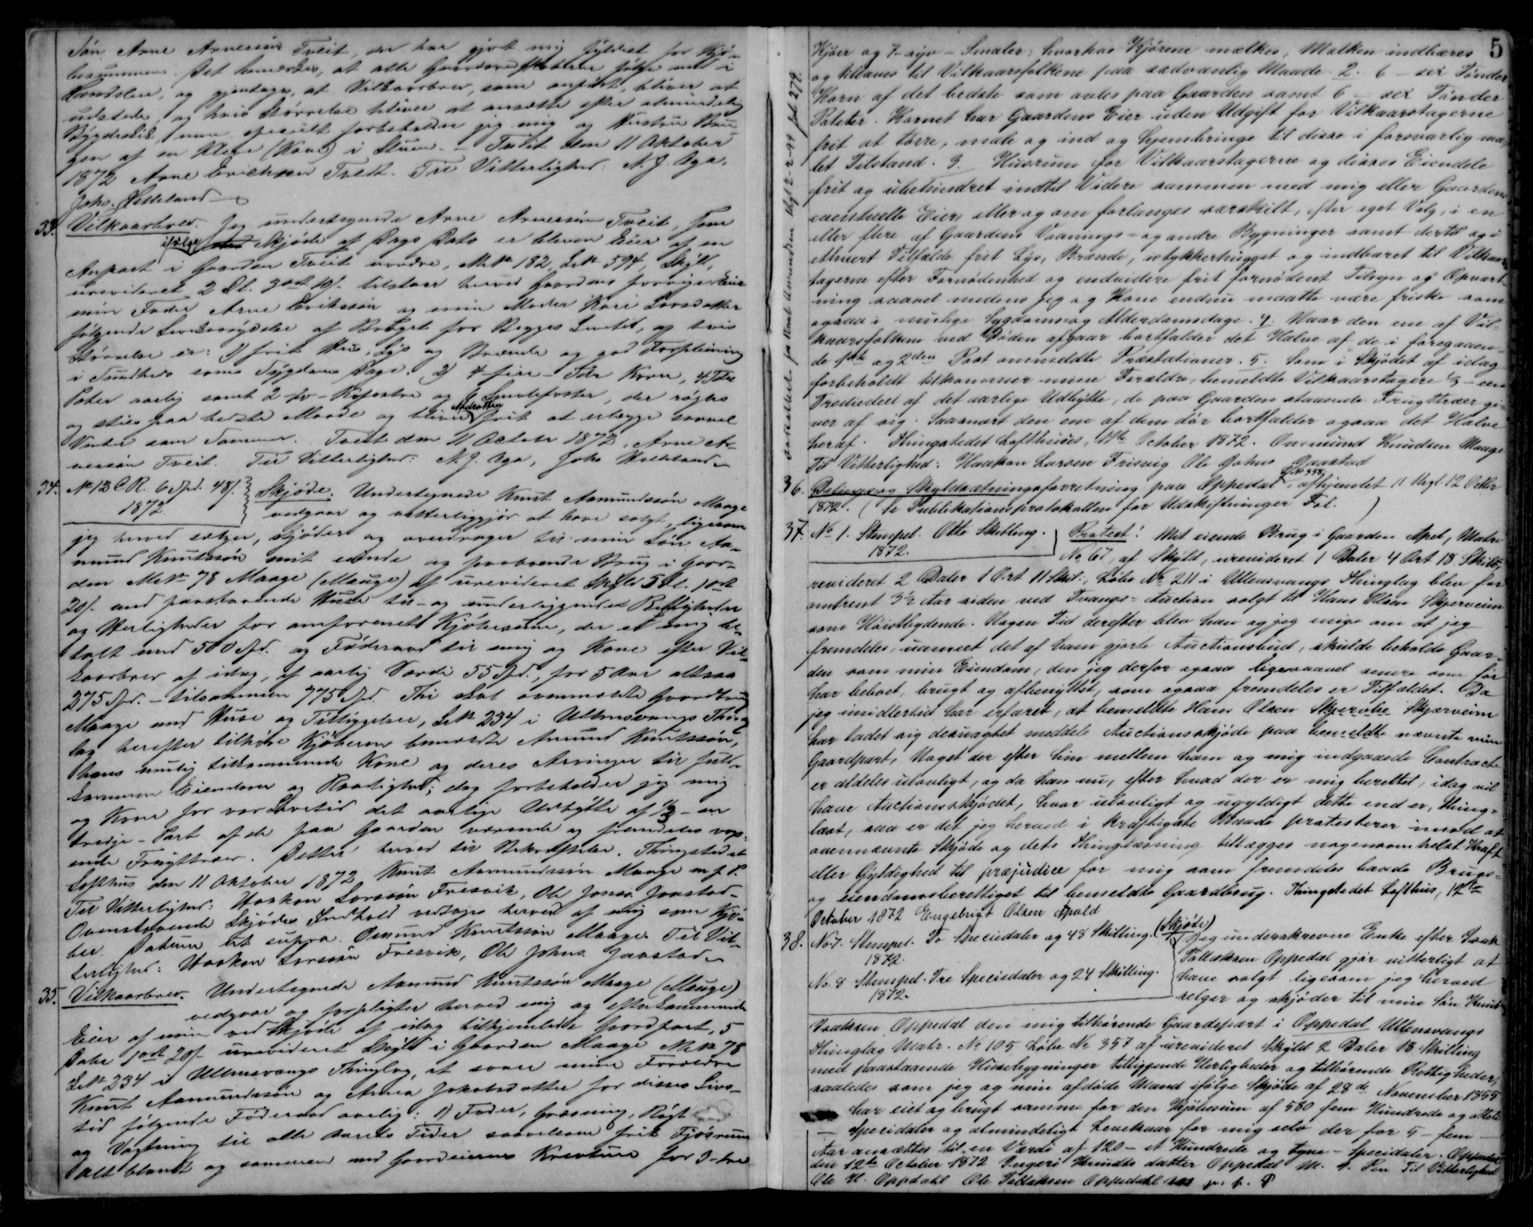 Søn Arne Arnesson Treit, der har gjort mig fyldest for Kjø-
besummen. Det bemærkes, at alle Gaardens Redskaber følge med i
Handelen, og gjentages, at Vilkaarsbrev, som anført, bliver at
udstede, og hvis Størrelse bliver at ansætte efter almindelig
Bygdeskik, men specielt forbeholder jeg mig og Hustru Bru-
gen af en Kleve (Kove) i Stuen. Treit den 11 Oktober
1872 Arne Erichsen Treit. Til Vitterlighed: N. J. Aga,
Johs. Helleland
33. Vilkaarsbrev. Jeg undertegnede Arne Arnesson Treit, som
ifølge Skjøde af Dags Dato er bleven Eier af en
Aapart i Gaarden Treit nordre, M.No 182, L.No 594, Skyld,
urevideret 2 Dl. 3 ort 10/- tilstaar herved Gaardens forrige Eiere
min Fader Arne Eriksson og min Moder Kari Larsdatter
følgende Livsbrødføde af Bruget for Begges Levetid, og hvis
Størrelse er: 1) frit Hus, Lys og Brænde og god Forpleining
i Sundheds som i Sygdoms Dage. 2) 4 fire Tdr Korn, 4 Tdr
Poter aarlig samt 2 to Kjørfostre og 6 Smaafostre, der røgtes
og sties paa bedste Maade og bliver Melkotten frit at erlægge saavel
Vinter som Sommer. Treit den 11 October 1872. Arne Ar-
nesson Treit. Til Vitterlighed: N. J. Aga, Johs Helleland
34. No 12 C.R. 6 Spd. 48/- Skjøde. Undertegnede Knut Aamundssøn Maage
1872. vedgaar og vitterliggjør at have solgt, ligesom
jeg herved sælger, skjøder og overdrager til min Søn Aa-
mund Knutssøn mit eiende og paaboende Brug i Gaar-
den M.No 78 Maage (Mauge) af urevideret Skyld 5 Dl. 1 ort
20/- med paastaaende Huse til- og underliggende Rettigheder
og Herligheder for omforenet Kjøbesum, der er mig be-
talt med 500 Spd. og Føderaad til mig og Kone efter Vil-
kaarsbrev af idag, af aarlig Værdi 55 Spd. for 5 Aar altsaa
275 Spd. – tilsammen 775 Spd. Thi skal ovennævnte Gaardbrug
Maage med Huse og Tilliggelser, L.No 234 i Ullensvangs Thing-
lag herefter tilhøre Kjøberen bemeldte Amund Knutssøn,
hans mulig tilkommende Kone og deres Arvinger til fuld-
kommen Eiendom og Raadighed; dog forbeholder jeg mig
og Kone for vor Levetid det aarlige Udbytte af 1/3 – en
tredje – Part af de paa Gaarden værende og fremdeles vox-
ende Frugttræer. Dette herved til Bekræftelse. Thingstedet
Lofthus den 11 Oktober 1872. Knut Aamundssøn Maage m.f.P.
Til Vitterlighed: Haakon Larssøn Tresvik, Ole Johns. Jaastad
Ovenstaaende Skjødes Indhold vedtages herved af mig som Kjø-
ber. Datum ut supra. Amund Knuttssøn Maage. Til Vit-
terlighed: Haakon Larssøn Fresvik, Ole Johns. Jaastad
35. Vilkaarsbrev. Undertegnede Aamund Knutssøn Maage (Mauge)
vedgaar og forpligter herved mig og efterkommende
Eier af min ved Skjøde af idag tilhjemlede Gaardpart, 5
Daler 1 ort 20/- urevideret Skyld i Gaarden Maage M.No 78
L.No 234 i Ullensvangs Thinglag, at svare mine Forældre
Knut Aamundssøn og Anna Jakobsdatter for deres Livs-
tid følgende Føderaad aarlig: 1) Foder, Græsning, Røgt
og Vogtning til alle Aarets Tider saavelsom frit Fjøsrum
alt blandt og sammen med Gaardeierens Kreature for 3-tre
5
Kjøer og 7-syv – Smaler; hvorhos Kjørene mælkes, Melken indbæres
og tillaves til Vilkaarsfolkene paa sædvanlig Maade. 2. 6 – sex Tønder
Korn af det bedste som avles paa Gaarden samt 6 – sex Tønder
Poteter. Kornet har Gaardens Eier uden Udgift for Vilkaarstagerne
frit at tørre, male og ind og hjembringe til disse i forsvarlig ma-
let Tilstand. 3. Husrum for Vilkaarstagerne og disses Eiendele
frit og ubehindret indtil Videre sammen med mig eller Gaardens
eventuelle Eier, eller og om forlanges særskilt, efter eget Valg, i en
eller flere af Gaardens Vaanings- og andre Bygninger samt dertil og i
ethvert Tilfælde frit Lys, Brænde, stykkerhugget og indbaret til Vilkaars-
tagerne efter Fornødenhed og endvidere frit fornødent Tilsyn og Opvart-
ning saavel medens jeg og Kone endnu maatte være friske som
ogsaa i mulige Sygdoms og Alderdomsdage. 4. Naar den ene af Vil-
kaarsfolkene ved Døden afgaar bortfalder det Halve af de i foregaaen-
de 1ste og 2den Post anmeldte Præstationer. 5. Som i Skjødet af idag
forbeholdt tilkommer mine Forældre, bemeldte Vilkaarstagere 1/3 – een
Trediedeel af det aarlige Udbytte, de paa Gaarden staaende Frugttræer gi-
ver af sig. Saasnart den ene af dem dør bortfalder ogsaa det Halve
heraf. Thingstedet Lofthuus, 11te October 1872. Ommund Knudsen Maage
Til Vitterlighed: Haakon Larsen Trisvig Ole Johns Jaastad
36. Delings- og Skyldsætningsforretning paa Oppedal L.No 358, afhjemlet 11 Thgl. 12 Octbr
1872. (se Publikationsprotokollen for Udskiftninger Fol. )
37. No 1. Stempel. Otte Skilling. Protest! Mit eiende Brug i Gaarden Apol, Matr.
1872. No 67, af Skyld, urevideret 1 Daler 4 Ort 18 Skill.,
revideret 2 Daler 1 Ort 11 Skil., Løbe No 211 i Ullensvangs Thinglag blev for
omtrent 3½ Aar siden ved Tvangs-Auction solgt til Hans Olsen Skjerveim
som Høistbydende. Nogen Tid derefter blev han og jeg enige om at jeg
fremdeles, uanseet det af ham gjorte Auctionsbud, skulde beholde Gaar-
den som min Eiendom, den jeg derfor ogsaa ligesaavel senere som før
har beboet, brugt og afbenyttet, som ogsaa fremdeles er Tilfældet. Da
jeg imidlertid har erfaret, at bemeldte Hans Olsen Skjerveim
har ladet sig desuagtet meddele Auctionsskjøde paa bemeldte nævnte min
Gaardpart, Noget der efter hin mellem ham og mig indgaaede Contract
er aldeles ulovligt, og da han nu, efter hvad der er mig berettet, idag vil
have Auctionsskjødet, hvor ulovligt og ugyldigt dette end er, thing-
læst, saa er det jeg herved i kraftigste Maade protesterer imod at
ovennævnte Skjøde og dets Thinglæsning tillægges nogensomhelst Kraft
eller Gyldighed til præjudice for mig som fremdeles baade Brugs-
og eiendomsberettiget til bemeldte Gaardbrug. Thingstedet Lofthus, 12te
October 1872 Engebrigt Olsen Apold
38. No 7. Stempel. To Speciedaler og 48 Skilling. (Skjøde)
1872. Jeg underskrevne Enke efter Isak
Tollaksen Oppedal gjør vitterligt at
No. 8 Stempel. Tre Speciedaler og 24 Skilling. have solgt ligesom jeg herved
1872. selger og skjøder til min Søn Knud
Isaaksen Oppedal den mig tilhørende Gaardepart i Oppedal Ullensvangs
Thinglag Matr. No 105 Løbe No 357 af urevideret Skyld 2 Daler 18 Skilling
med paastaaende Huusebygninger tilliggende Herligheder og tilhørende Rettigheder,
saaledes som jeg og min afdøde Mand ifølge Skjøde af 28de November 1855
har eiet og brugt samme for den Kjøbesum af 580 fem Hundrede og otteti
– Speciedaler og almindeligt Levekaar for mig selv der for 5 – fem –
Aar ansættes til en Værdi af 120 – et Hundrede og tyve – Speciedaler. Oppedal
den 12te October 1872 Ingeri Knudsdatter Oppedal m. f. Pen Til Vitterlighed
Ole H. Oppdahl Ole Tollaksen Oppedahl m. p. P.